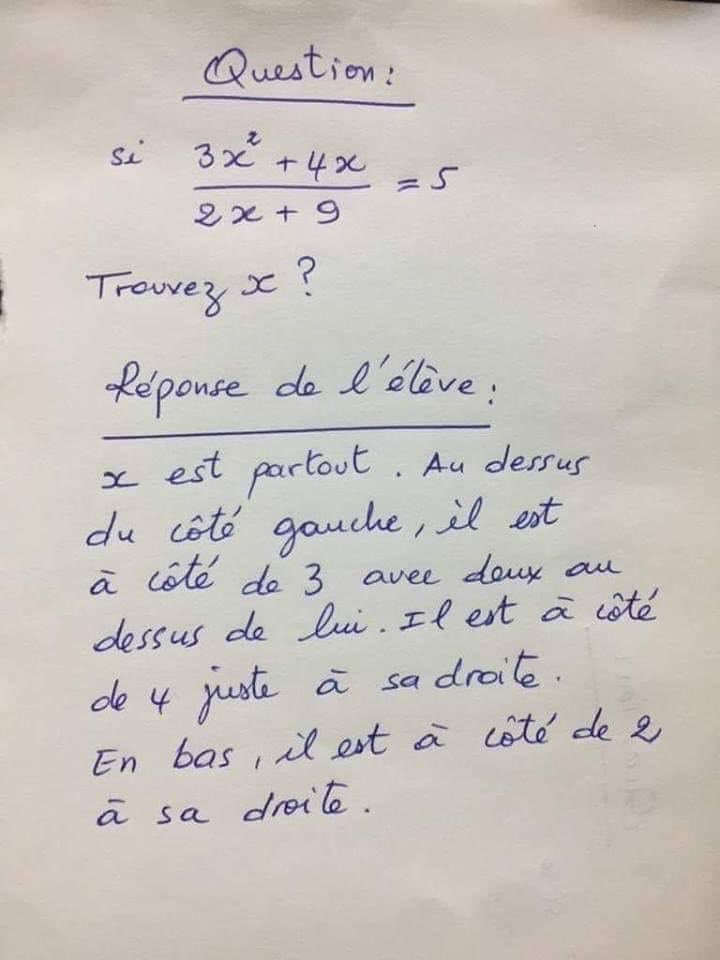 Question:
si 3x² + 4x
= 5
2x + 9
Trouvez x ?
Réponse de l'élève:
x est partout. Au dessus
du côté gauche, il est
à côté de 3 avec deux au
dessus de lui. Il est à côté
de 4 juste à sa droite.
En bas, il est à côté de 2
à sa droite.